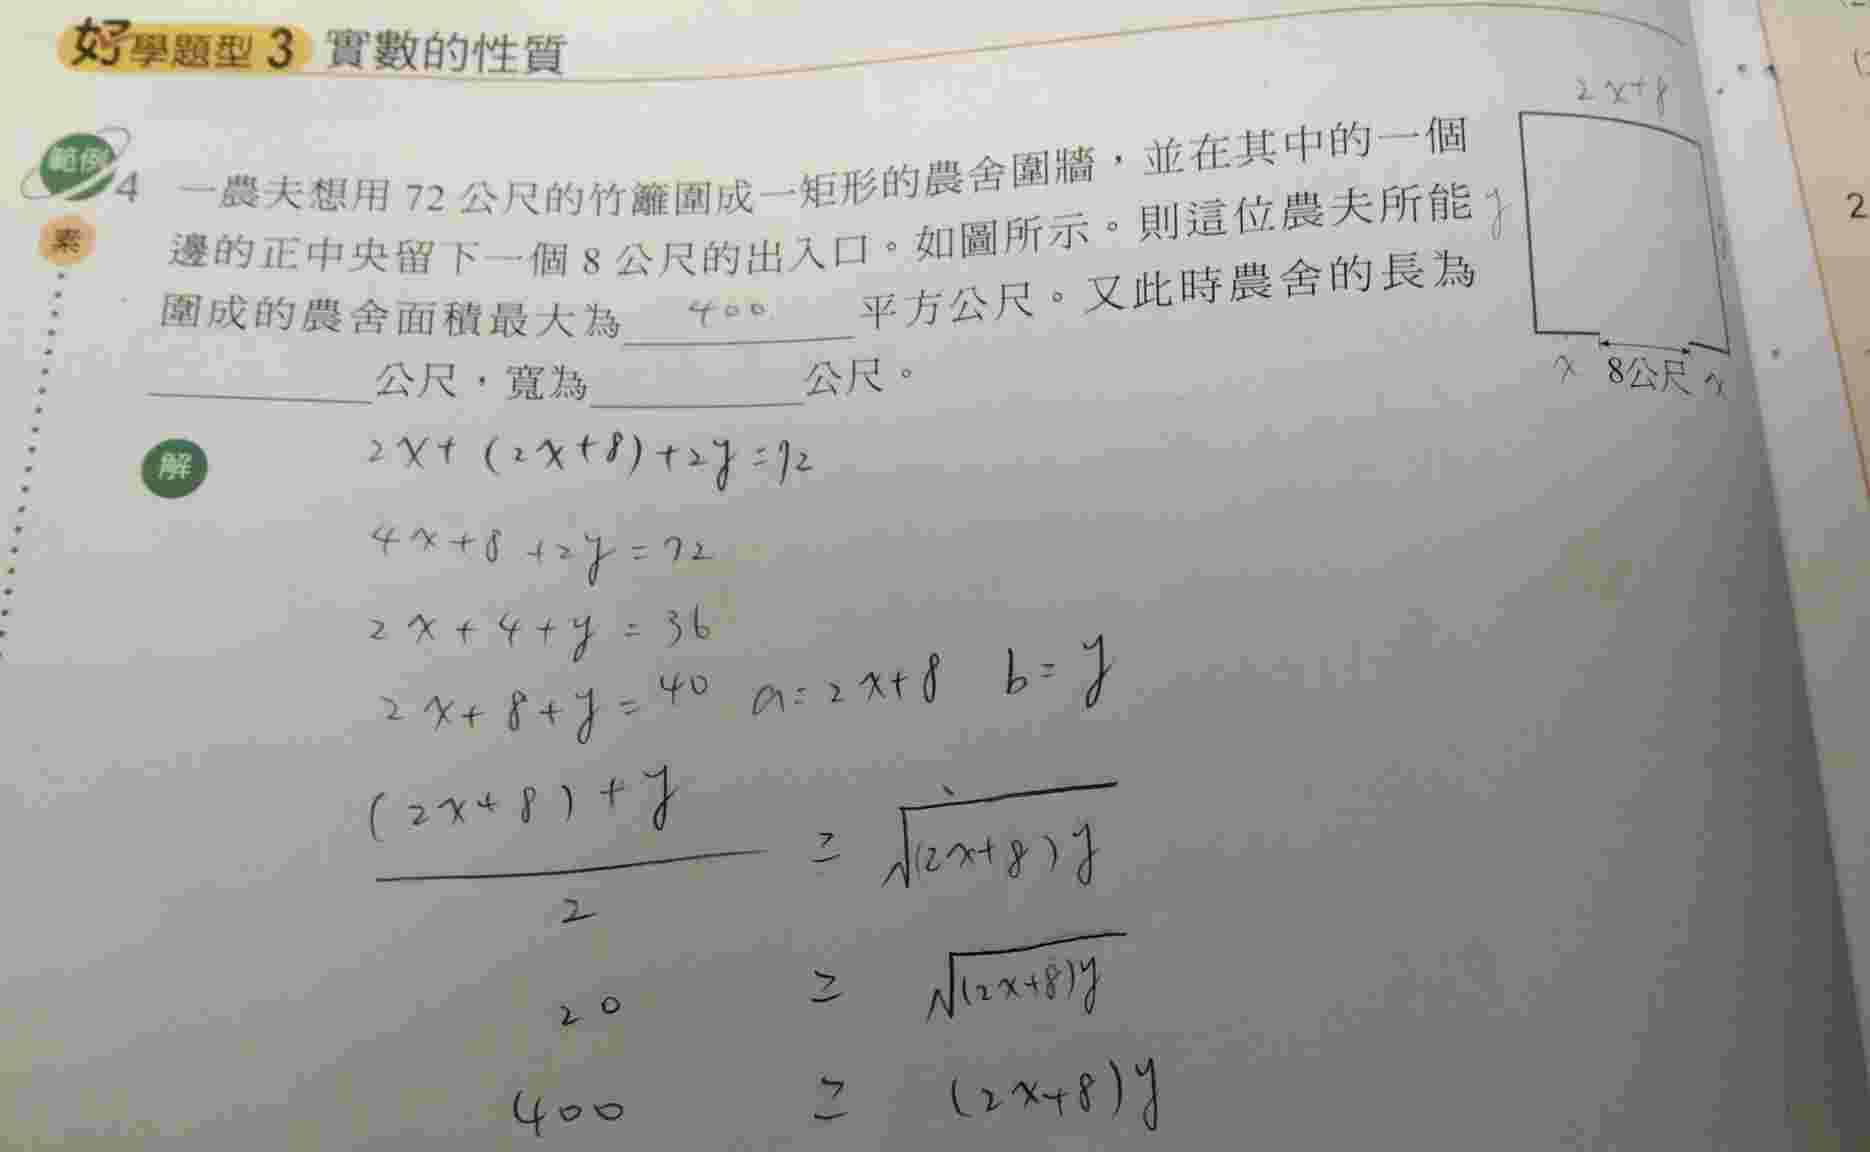 好學題型 3 實數的性質
範例 4 一農夫想用 72 公尺的竹籬圍成一矩形的農舍圍牆，並在其中的一個
素 邊的正中央留下一個 8 公尺的出入口。如圖所示。則這位農夫所能
圍成的農舍面積最大為 400 平方公尺。又此時農舍的長為
公尺，寬為 公尺。
2x+8
y
x 8公尺 x
2
解
2x+(2x+8)+2y=72
4x+8+2y=72
2x+4+y=36
2x+8+y=40 a=2x+8 b=y
(2x+8)+y / 2 ≥ √(2x+8)y
20 ≥ √(2x+8)y
400 ≥ (2x+8)y